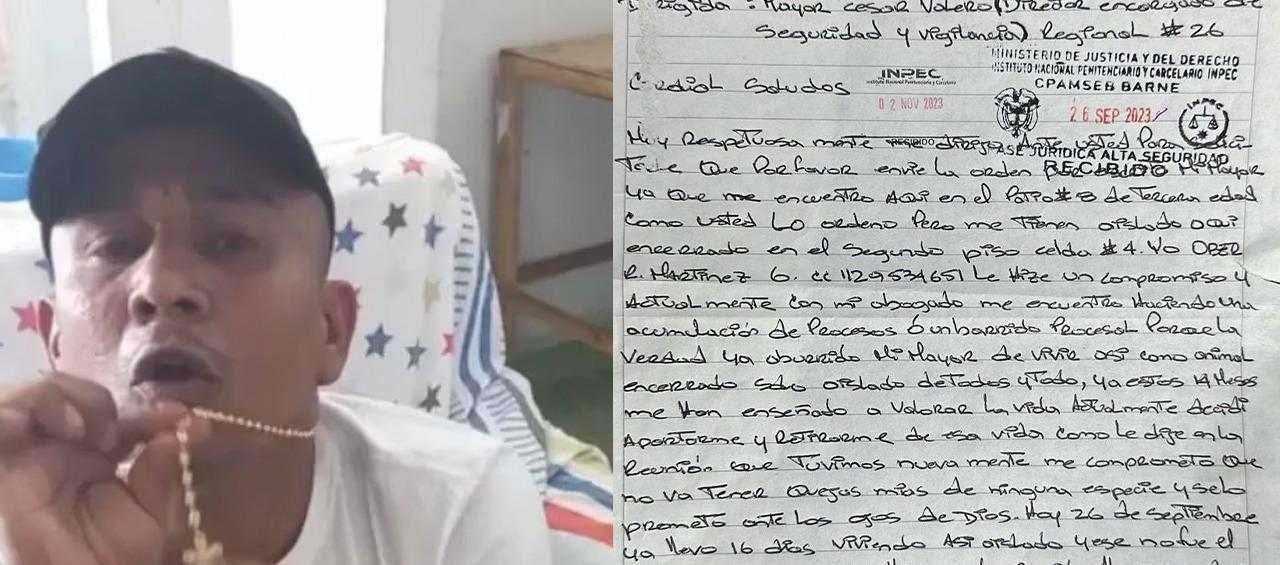 rigida : Mayor cesar Valero (Director encargado de
Seguridad y vigilancia) Regional # 26
MINISTERIO DE JUSTICIA Y DEL DERECHO
INSTITUTO NACIONAL PENITENCIARIO Y CARCELARIO INPEC
CPAMSEB BARNE
INPEC
Instituto Nacional Penitenciario y Carcelario
02 NOV 2023
RECIBIDO
26 SEP 2023
INPEC
FASE JURIDICA ALTA SEGURIDAD
RECIBIDO
Cordial Saludos
Muy Respetuosa mente dirijo Ante Usted Para
Que Por favor envie la orden Mi Mayor
ya Que me encuentro AQui en el PaTio # 8 de Tercera edad
como usted Lo ordeno Pero me Tienen aislado aQui
encerrado en el Segundo piso celda # 4. Yo OBER
R. MARTINEZ G. cc 1129534651 Le Hize un compromiso y
Actualmente con mi abogado me encuentro Haciendo una
acumulación de Procesos ó un barrido Procesal Porque la
Verdad ya aburrido Mi Mayor de vivir asi como animal
encerrado solo aislado de Todos y Todo, ya estos 14 Meses
me Han enseñado a Valorar La vida Actualmente decidi
Apartarme y Retirarme de esa vida como le dije en la
Reunión Que Tuvimos nueva mente me comprometo Que
no va Tener Quejas mias de ninguna especie y se lo
prometo ante los ojos de Dios. Hoy 26 de septiembre
ya llevo 16 dias viviendo Asi aislado y ese no fue el